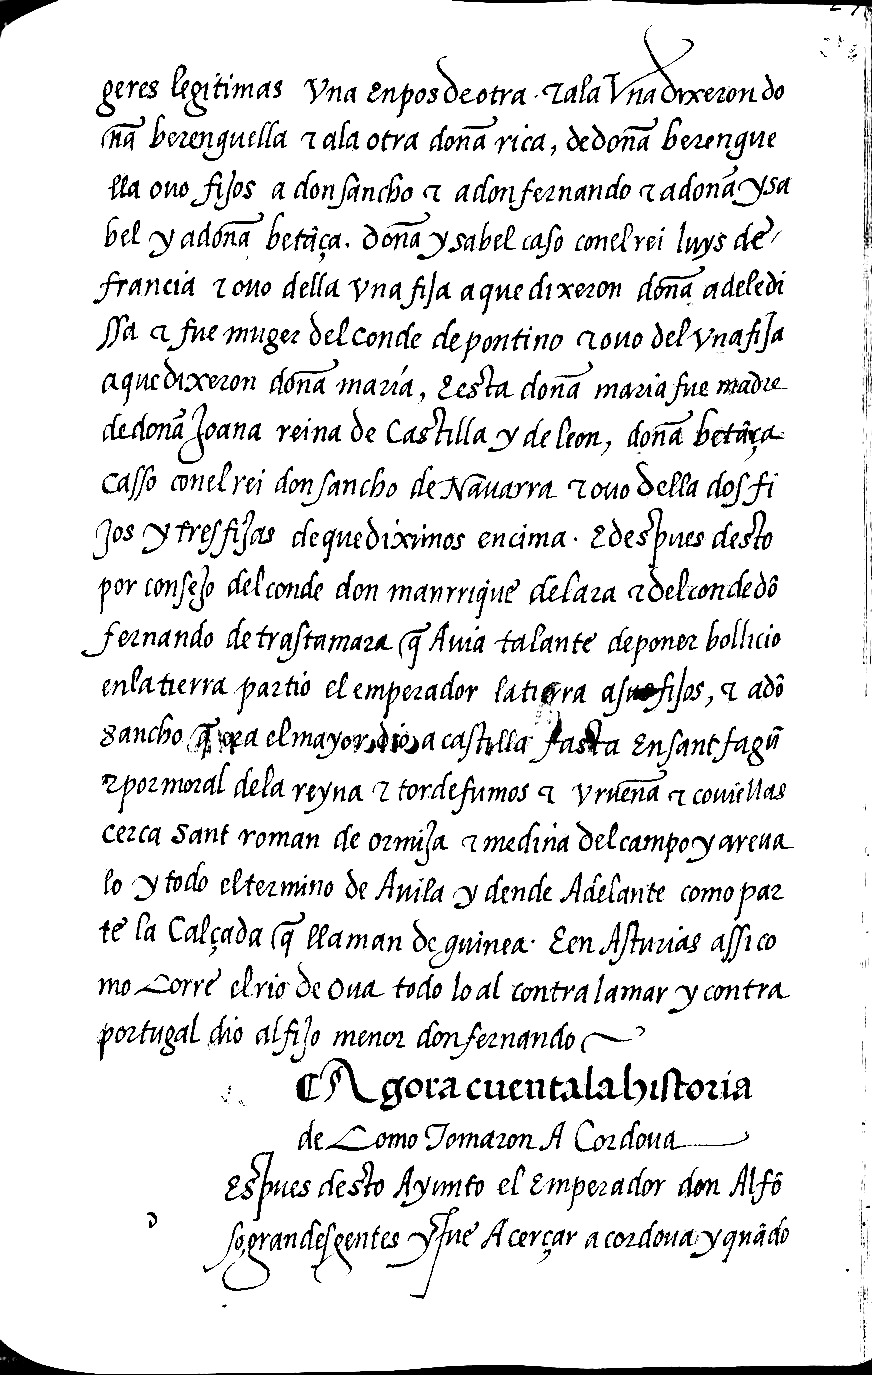 geres legitimas Vna Enpos de otra. τ ala Vna dixeron do
ña berenguella τ ala otra doña rica, de doña berengue
lla ouo fijos a don sancho τ a don fernando τ a doña ysa
bel y a doña betãça. Doña ysabel caso con el rei luys de
francia τ ouo della Vna fija a que dixeron doña adeledi
ssa τ fue muger del conde de pontino τ ouo del Vna fija
a que dixeron doña maría, E esta doña maria fue madre
de doña Joana reina de Castilla y de leon, doña betãça
Casso con el rei don sancho de Nauarra τ ouo della dos fi
jos y tres fijas de que diximos encima. E despues desto
por consejo del conde don manrrique de lara τ del conde dõ
fernando de trastamara q̃ Auia talante de poner bollicio
en la tierra partio el emperador la tierra a sus fijos, τ a dõ
Sancho q̃ era el mayor dio a castilla fasta En sant fagũ
τ por moral de la reyna τ tordefumos τ Vrueña τ couiellas
cerca Sant roman de ormija τ medina del campo y areua
lo y todo el termino de Auila y dende Adelante como par
te la Calçada q̃ llaman de guinea. E en Asturias assi co
mo Corre el rio de Oua todo lo al contra la mar y contra
portugal dio al fijo menor don fernando
¶ Agora cuenta la historia
de Como Tomaron A Cordoua
Espues desto Ayunto el Emperador don Alfõ
so grandes gentes y fue A cerçar a cordoua y quãdo
D